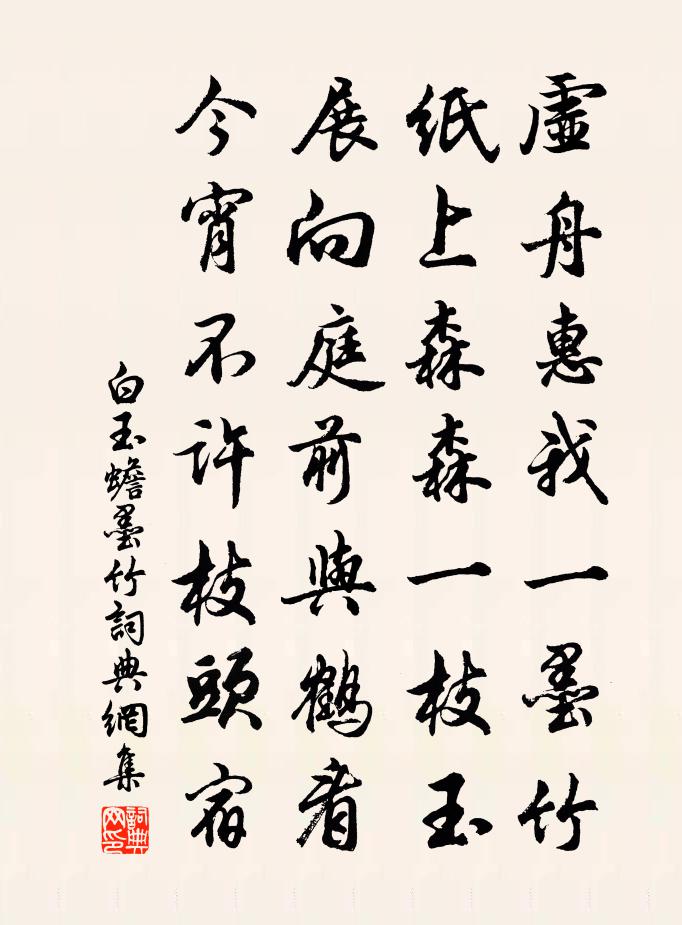 虛舟惠我一墨竹
紙上森森一枝玉
展向庭前與鶴看
今宵不許枝頭宿
白玉蟾墨竹詞典網集
詞典
網印